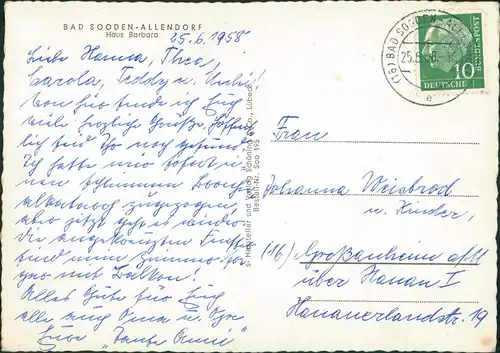 BAD SOODEN-ALLENDORF
Haus Barbara
25.6.1958
Liebe Hanna, Theo,
Carola, Teddy u. Uschi!
Von hier sende ich Euch
viele herzliche Grüße. Hoffent-
lich seid Ihr noch gesund!
Ich hatte mir sofort ei-
nen schlimmen
zugezogen,
aber jetzt geht es wieder.
Die
sind mein Zimmer
mit Balkon!
Alles Gute für Euch
alle auch Oma u. Opa
Eure "Tante Anni"
Hersteller und Verlag Schöning & Co., Lübeck
Bestell-Nr. Soo 195
(16) BAD SOODEN-ALLENDORF
25.6.58
e
DEUTSCHE BUNDESPOST
10
Frau
Johanna Weisbrod
u. Kinder,
(16) Großauheim a/M
über Hanau I
Hanauerlandstr. 19